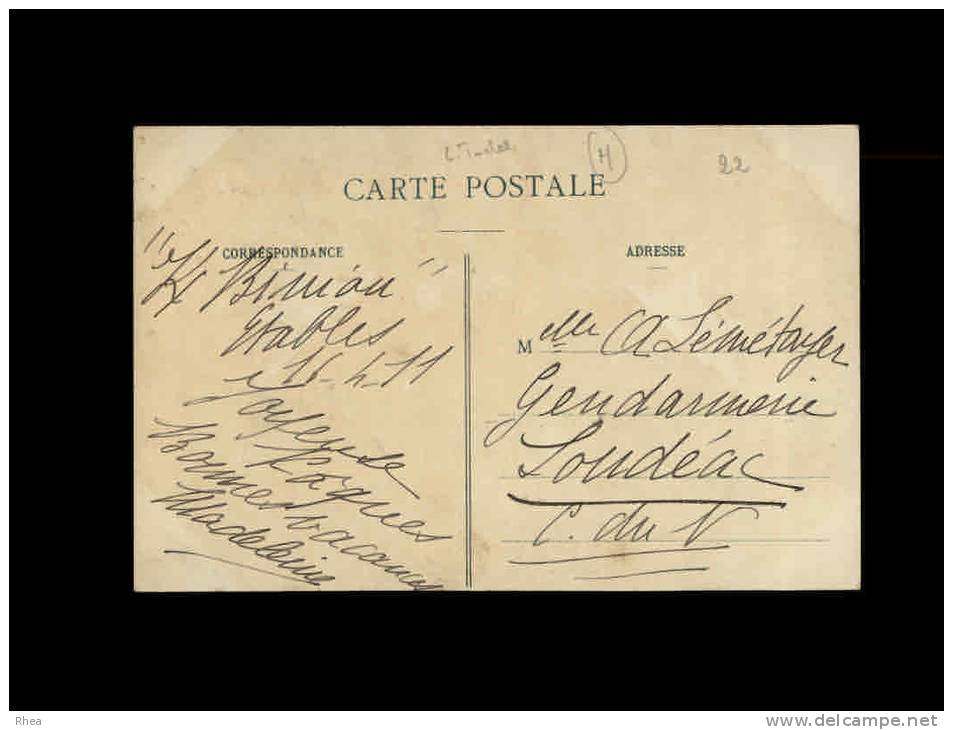 22
(H)
CARTE POSTALE
CORRESPONDANCE
"Ker Biniou"
Etables
16-4-11
Joyeuse
Pâques
Bonnes vacances
Madeleine
ADRESSE
Melle A Lémétayer
Gendarmerie
Loudéac
C. du N
Rhea
www.delcampe.net